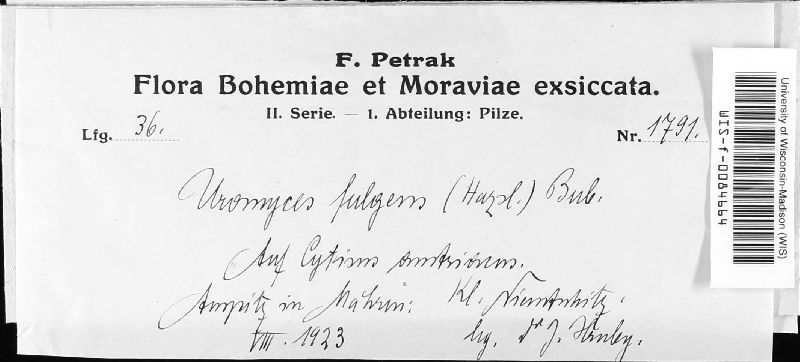 F. Petrak
Flora Bohemiae et Moraviae exsiccata.
II. Serie. — 1. Abteilung: Pilze.
Lfg. 36. Nr. 1791.
Uromyces fulgens (Hazsl.) Bub.
Auf Cytisus austriacus.
Auspitz in Mähren: Kl. Niemtschitz.
VIII. 1923 lg. Dr J. Hruby.
University of Wisconsin-Madison (WIS)
WIS-f-0084664